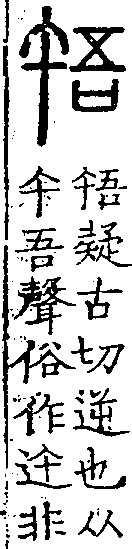 啎
啎疑古切逆也从
午吾聲俗作迕非